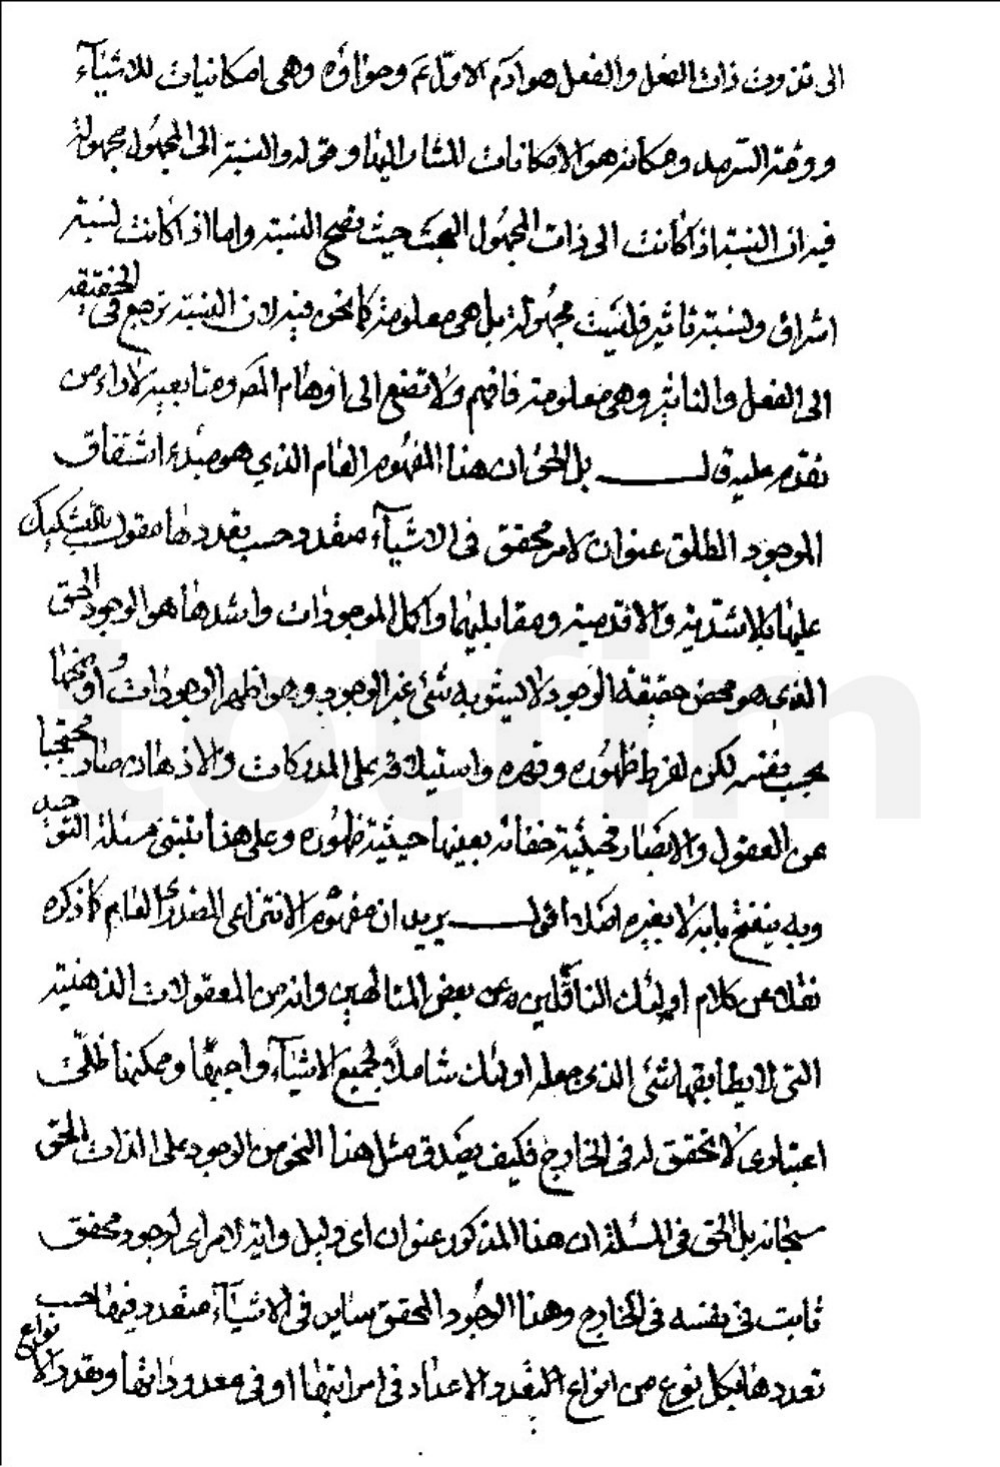 الى تذوت ذات الفعل والفعل هو ادم الاول ع م وحواؤه وهى امكانيات للاشياء
ووقته السرمد ومكانه هو الامكانات المشار اليها وقوله والنسبة الى المجهول مجهولة
فيه ان النسبة اذا كانت الى ذات المجهول البحت حيث تصح النسبة واما اذا كانت نسبة
اشراق ونسبة تاثير فليست مجهولة بل هى معلومة كما نحن فيه لان النسبة ترجع فى الحقيقة
الى الفعل والتاثير وهى معلومة فافهم ولا تصغ الى اوهام المص ومتابعيه لاداء من
تقدم عليه قال بل الحق ان هذا المفهوم العام الذي هو مبدء اشتقاق
الموجود المطلق عنوان لامر محقق فى الاشياء متعدد حسب تعددها مقول بالتشكيك
عليها بالاشدية والاقدمية ومقابليهما واكمل الموجودات واشدها هو الوجود الحق
الذي هو محض حقيقة الوجود لا يشوبه شئ غير الوجود وهو اظهر الوجودات واوضحها
بحسب نفسه لكن لفرط ظهوره وقهره واستيلائه على المدركات والاذهان صار محتجبا
عن العقول والابصار فحيثية خفائه بعينها حيثية ظهوره وعلى هذا تبتنى مسئلة التوحيد
وبه ينفتح بابه لا بغيره اصلا اقول يريد ان مفهومه الانتزاعى المصدرى العام كما ذكره
نقلا عن كلام اولئك الناقلين عن بعض المتالهين وانه من المعقولات الذهنية
التى لا يطابقها شئ الذى جعله اولئك شاملا لجميع الاشياء واجبها وممكنها ظلى
اعتبارى لا تحقق له فى الخارج فكيف يصدق مثل هذا النحو من الوجود على الذات الحق
سبحانه بل الحق فى المسئلة ان هذا المذكور عنوان اى دليل واية لامر اى لوجود محقق
ثابت فى نفسه فى الخارج وهذا الوجود المحقق سارى فى الاشياء متعدد فيها حسب
تعددها بكل نوع من انواع التعدد والاعداد فى مراتبها او فى معدوداتها وتعدد الانواع